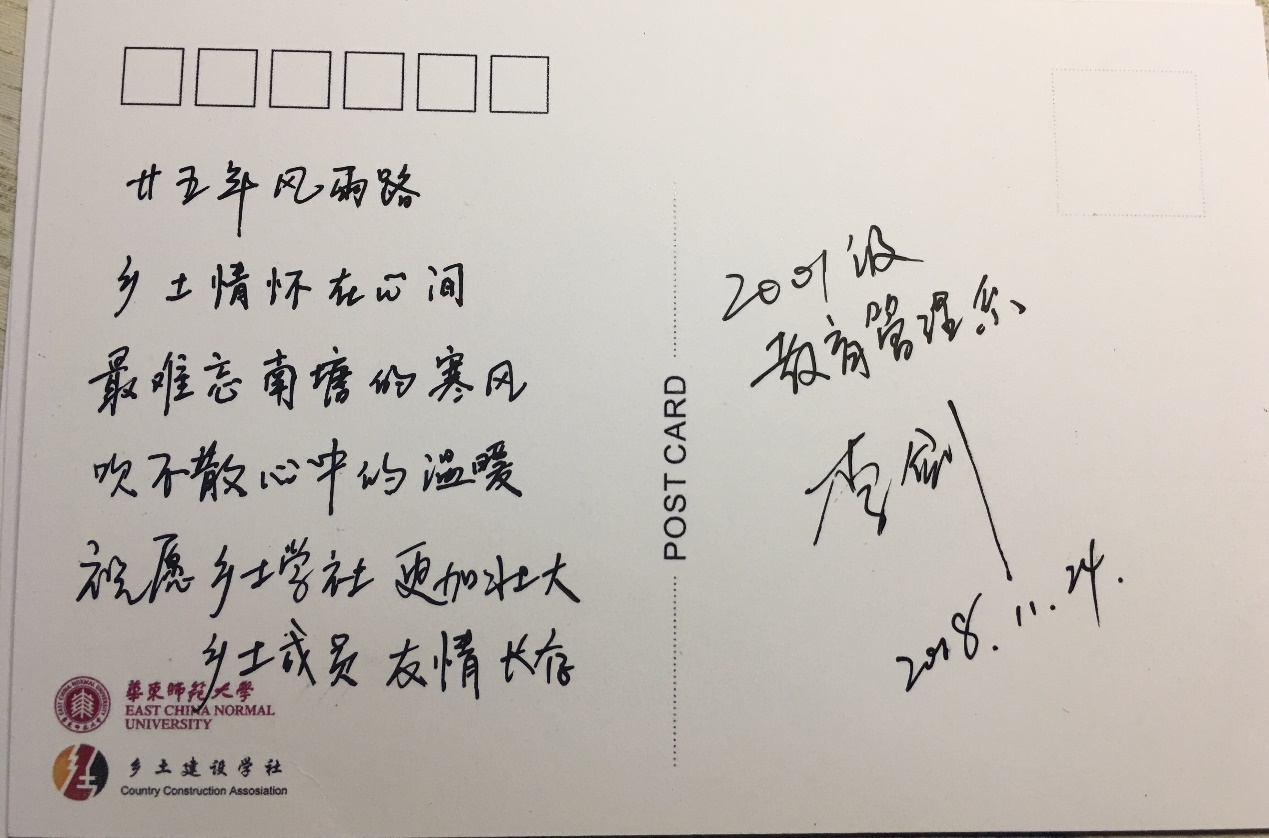 廿五年风雨路
乡土情怀在心间
最难忘南塘的寒风
吹不散心中的温暖
祝愿乡土学社更加壮大
乡土成员友情长存
華東師范大學
EAST CHINA NORMAL
UNIVERSITY
乡土建设学社
Country Construction Assosiation
POST CARD
2001级
教育管理系
李
2018.11.24.